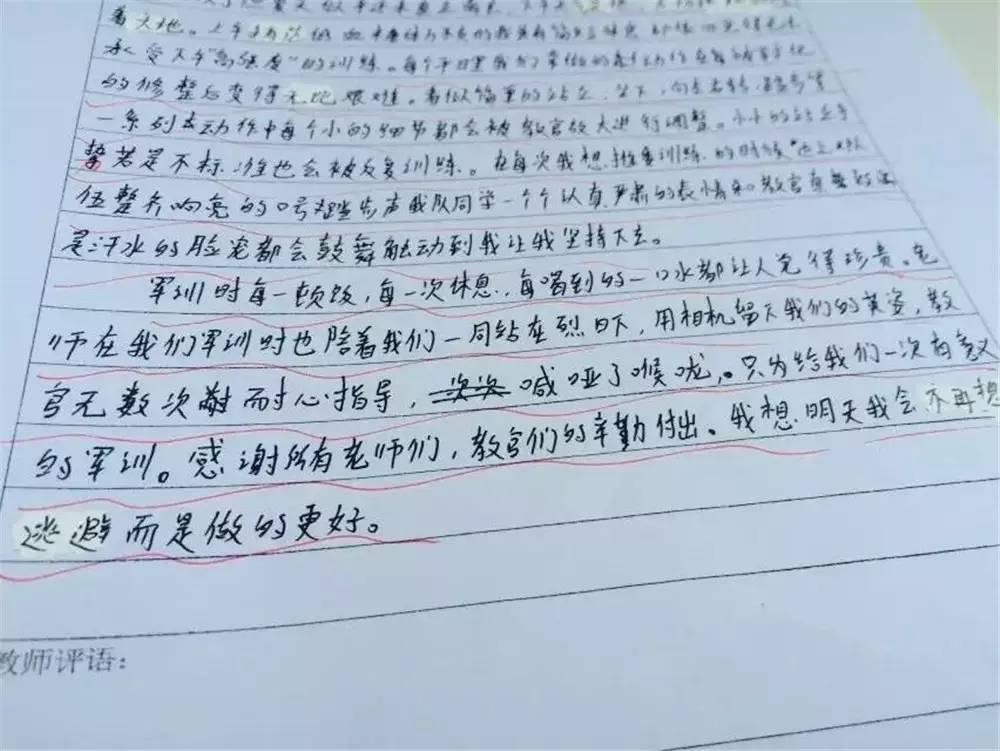 着大地。上午
承受下午“高强度”的训练。每个平日里我们常做的
的修整后变得无比艰难。看似简单的站立、坐下、向左右转、踏步等
一系列去动作中每个小的细节都会被教官放大进行调整。小小的站立手
势若是不标准也会被反复训练。在每次我想放弃训练的时候
伍整齐响亮的口号踏步声我队同学一个个认真严肃的表情和教官
是汗水的脸庞都会鼓舞触动到我让我坚持下去。
军训时每一顿饭，每一次休息，每喝到的一口水都让人觉得珍贵。老
师在我们军训时也陪着我们一同站在烈日下，用相机留下我们的英姿，教
官无数次耐心指导，喊哑了喉咙。只为给我们一次有意义
的军训。感谢所有老师们，教官们的辛勤付出。我想明天我会不再想
逃避而是做的更好。
教师评语：